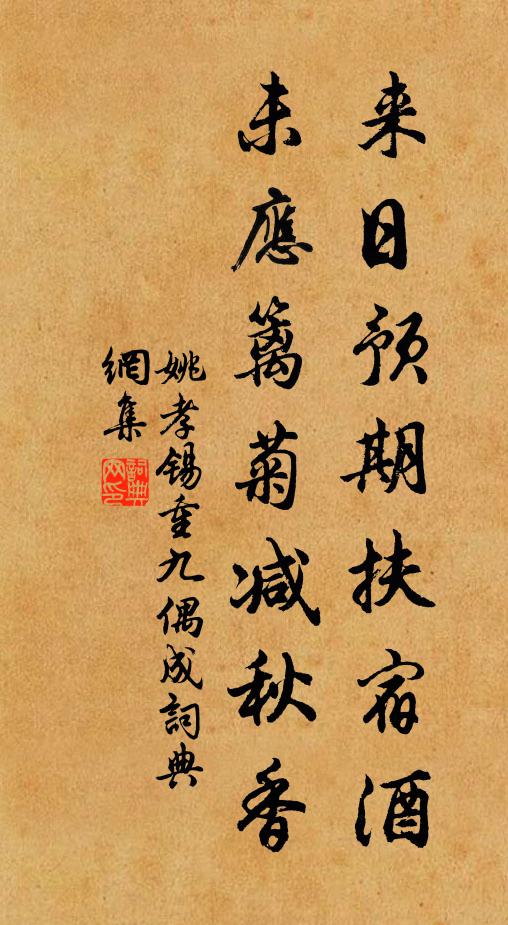 来日预期扶宿酒
未應籬菊减秋香
姚孝锡重九偶成詞典
網集
詞典
网印